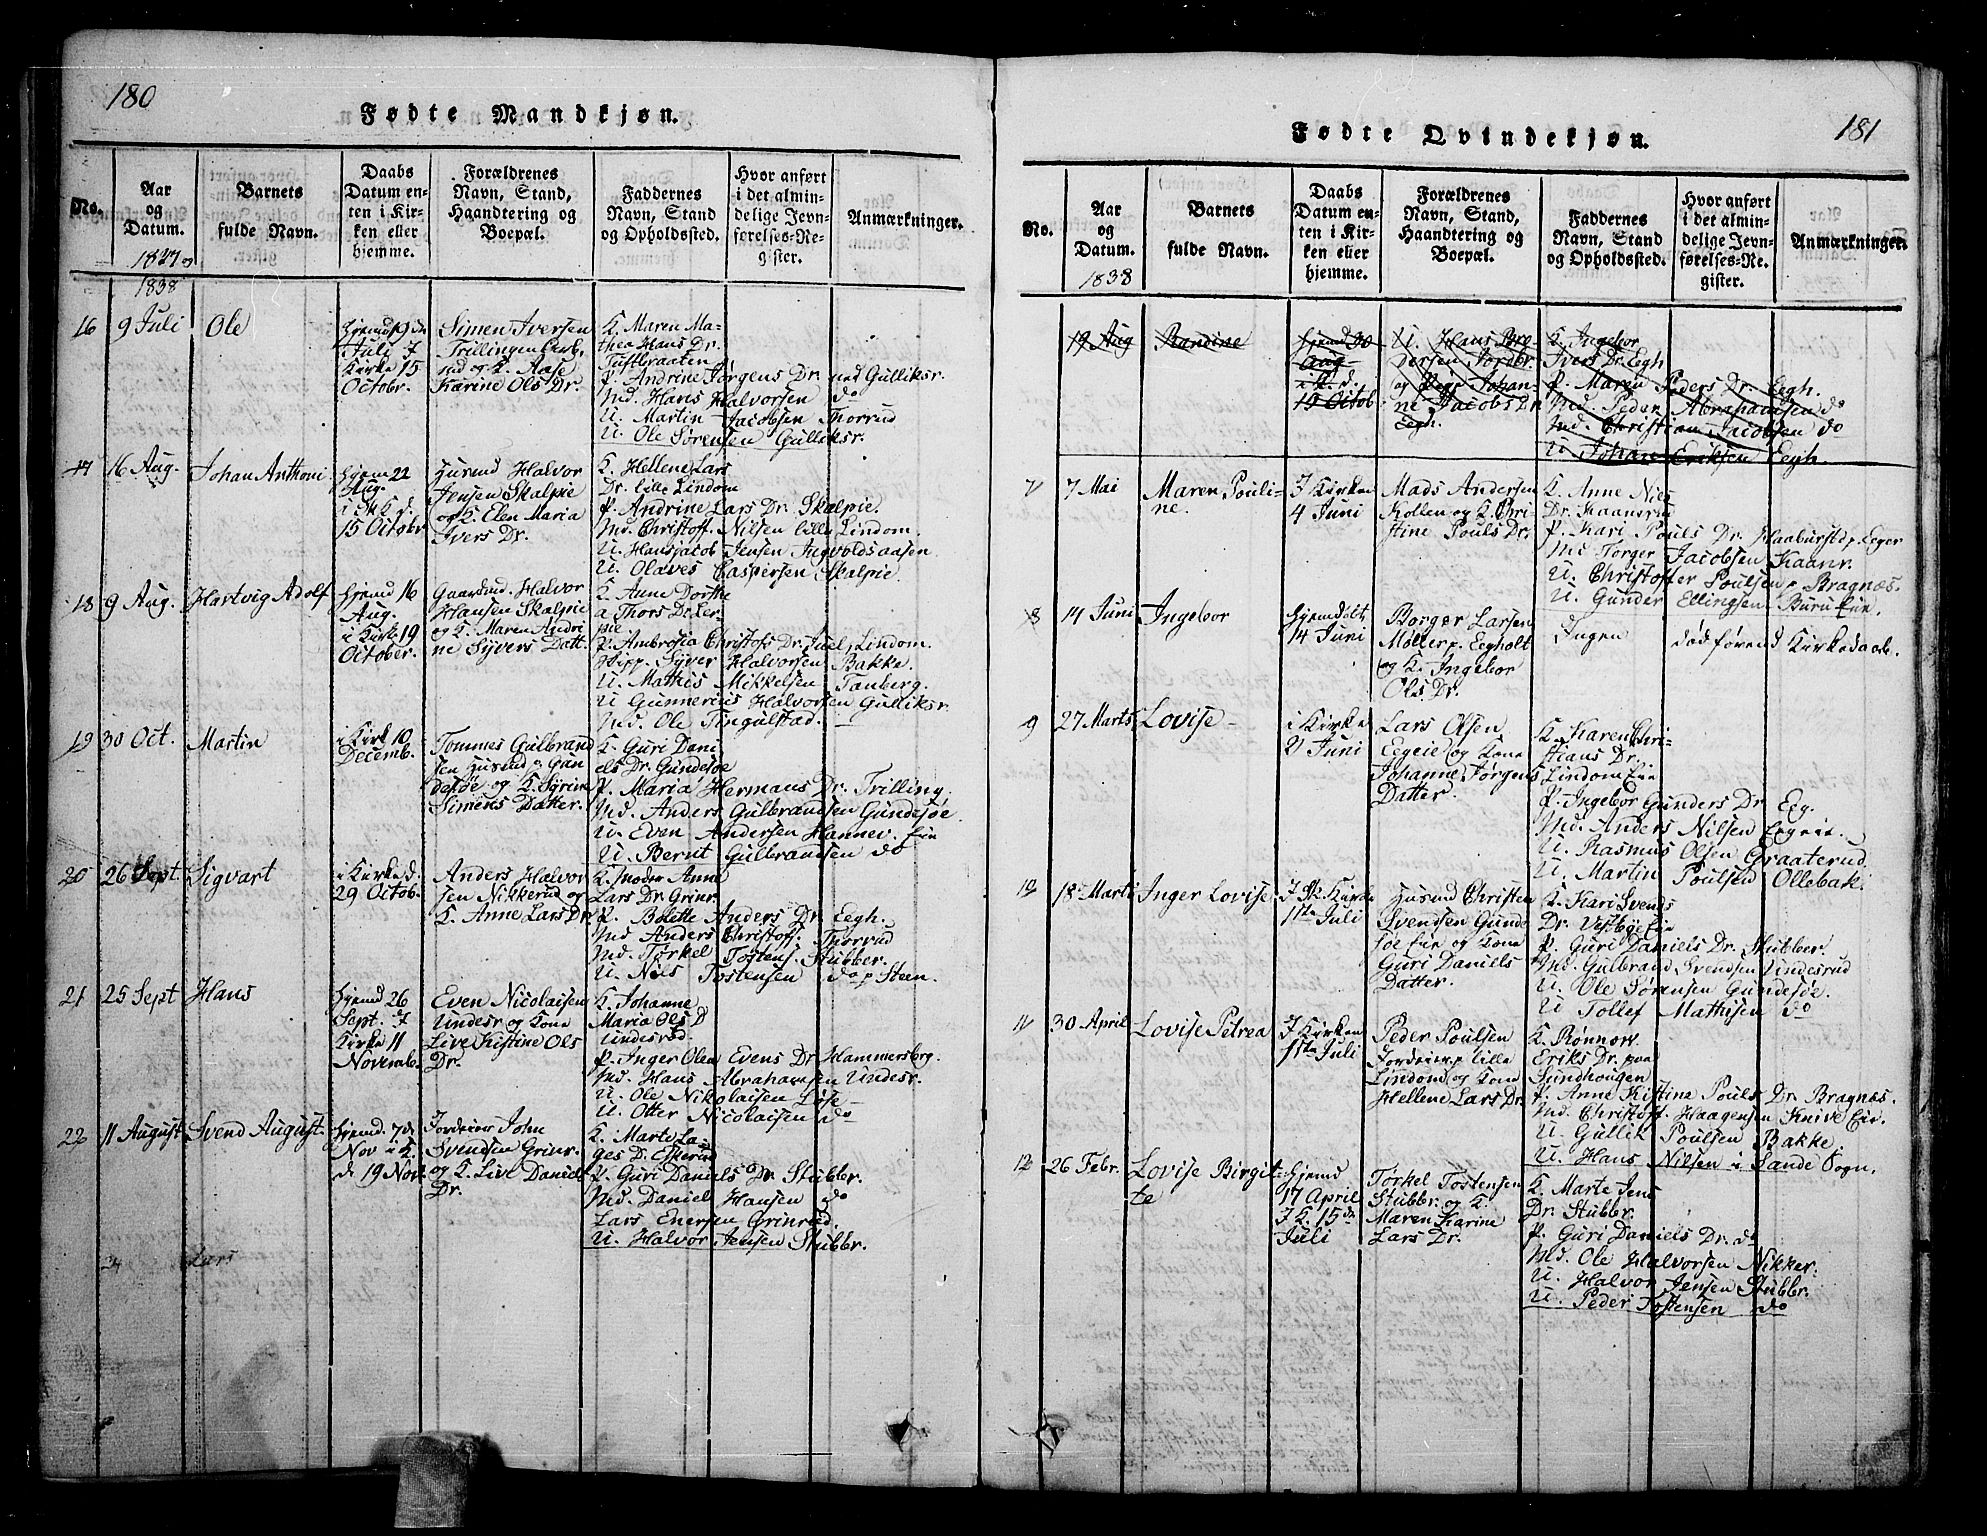 180
Fødte Mandkjøn.
No.
Aar
og
Datum.
1827 og
1838
Barnets
fulde Navn.
Daabs
Datum en-
ten i Kir-
ken eller
hjemme.
Forældrenes
Navn, Stand,
Haandtering og
Boepæl.
Faddernes
Navn, Stand
og Opholdssted.
Hvor anført
i det almin-
delige Jevn-
førelses-Re-
gister.
Anmærkninger.
16
9 Juli
Ole
Juli I
Kirke 15
Octobr.
Simen Iversen
Trillingen
og K. Aase
Karine Ols Dr.
K. Maren Ma-
thea Hans Dr.
Tuftbraaten
P. Andrine Jørgens Dr. ned Gulliksr.
Md. Hans Halvorsen do
U. Martin Jacobsen Thorrud
U. Ole Sørensen Gulliksr.
17
16 Aug.
Johan Anthoni
Hjem 22
Aug.
i K. d.
15 Octobr
Husmd Halvor
Jensen Skalpie
og K. Elen Maria
Ivers Dr.
K. Hellene Lars
Dr. lille Lindom
P. Andrine Lars Dr. Skalpie.
Md. Christoff. Nilsen lille Lindom.
U. Hansjacob Jensen Ingvoldsaasen
U. Olaves Caspersen Skalpie.
18
9 Aug.
Hartvig Adolf
Hjemd 16
Aug.
i Kirke 19
October.
Gaardmd. Halvor
Hansen Skalpie
og K. Maren Andri
ne Syvers Datt.
K. Anne Dorthe
a Thors Dr. Ler-
pie
P. Ambrosia Christofs Dr. Juel, Lindom.
Hipp. Syver Halvorsen Bakke.
U. Mathis Mikkelsen Tanberg.
U Gunnerius Halvorsen Gulliksr.
Md. Ole Tingulstad.
19
30 Oct.
Martin
i Kirk 10
Decemb.
Tommes Gulbrand
sen Husmd p Gun
desøe og K. Syrine
Simens Datter.
K. Guri Dani
els Dr. Gundesøe
P. Maria Hermans Dr. Trilling.
Md. Anders Gulbrandsen Gundesøe.
U. Even Andersen Hannev. Eie
U. Bernt Gulbrandsen do
20
26 Sept.
Sigvart
i Kirke d.
29 Octob.
Anders Halvor
sen Nikkerud og
K. Anne Lars Dr
K. Moder Anne
Lars Dr Grinr.
P. Bolette Anders Dr Eegh.
Md Anders Christoff. Thorrud
Md. Tørkel Tostens. Stubber.
U. Niels Tostensen do p Steen.
21
25 Sept
Hans
Hjemd 26
Sept. I
Kirke 11
Novemb.
Even Nicolaisen
Undesr og Kone
Live Kistine Ols
Dr.
K. Johanne
Maria Ols D
Undesrud.
P. Inger Olea Evens Dr Hammersborg.
Md. Hans Abrahamsen Undesr.
U. Ole Nikolaisen Løse
U. Otter Nicolaisen do
22
11 August
Svend August.
Hjemd. 7 d.
Nov i K.
d. 19 Nov.
Jordeier John
Svendsen Grinr.
og K. Live Daniels
Dr.
K. Marte La-
ges D. Eskerud
P. Guri Daniels Dr. Stubbr.
Md. Daniel Hansen do
Lars Enersen Grinrud.
U. Halvor Jensen Stubbr.
Lars
181
Fødte Qvindekjøn.
No.
Aar
og
Datum.
1838
Barnets
fulde Navn.
Daabs
Datum en-
ten i Kir-
ken eller
hjemme.
Forældrenes
Navn, Stand,
Haandtering og
Boepæl.
Faddernes
Navn, Stand
og Opholdssted.
Hvor anført
i det almin-
delige Jevn-
førelses-Re-
gister.
Anmærkninger.
19 Aug
Randine
Hjemd 30
Aug
i K. d.
15 Octob
U. Hans Pe-
dersen Jordbr.
og Pige Johan-
ne Jacobs Dr
Eegh.
K. Ingebor
Ivers Dr. Eegh
P. Maren Peders Dr. Eegh.
Md. Peder Abrahamsen do
Md. Christian Jacobsen do
U Johan Eriksen Eegh.
7
7 Mai
Maren Pouli-
ne.
I Kirken
4 Juni
Mads Andersen
Kollen og K. Chri-
stine Pouls Dr.
K. Anne Niels
Dr. Kaansrud
P. Kari Pouls Dr. Haaburst p. Eger
Md Torger Jacobsen Kaanr.
U. Christoffer Poulsen p. Bragnæs.
U. Gunder Ellingsen Buru Eie.
8
14 Juni
Ingebor
Hjemdøbt
14 Juni
Borger Larsen
Møller p. Eegholt
og K. Ingebor
Ols Dr.
Ingen
død forend Kirkedaab.
9
27 Marts
Lovise
i Kirke
21 Juni
Lars Olsen
Eegeie og Kone
Johanne Jørgens
Datter.
K. Karen Chri-
stians Dr.
Lindom Eie
P. Ingebor Gunders Dr Eeg.
Md. Anders Nilsen Eegeie.
U. Rasmus Olsen Graaterud.
U. Martin Poulsen Ollebak.
10
18 Marti
Inger Lovise
I Sk. Kirke
1ste Juli
Husmd Christen
Svendsen Gunde
søe Eie og Kone
Guri Daniels
Datter.
K. Kari Svends
Dr. Vestbye Eie
P. Guri Daniels Dr. Stubber.
Md. Gulbrand Svendsen Undesrud
U. Ole Sørensen Gundesøe.
U Tollef Mathisen do
11
30 April
Lovise Petrea
I Kirken
1ste Juli
Peder Poulsen
Jordeier p lille
Lindom og Kone
Hellene Lars Dr.
K. Rønnov
Eriks Dr. paa
Sundhougen
P. Anne Kistine Pouls Dr. Bragnæs.
Md. Christoff. Haagensen Knive Eie.
U Gullik Poulsen Bakke.
U. Hans Nilsen i Sande Sogn.
12
26 Febr.
Lovise Birgit-
te
Hjemd
17 April
I K. 15 d
Juli
Tørkel Tostensen
Stubbr. og K.
Maren Karine
Lars Dr.
K. Marte Jens
Dr. Stubbr.
P. Guri Daniels Dr. do
Md. Ole Halvorsen Nikker.
U. Halvor Jensen Stubbr.
U. Peder Tostensen do